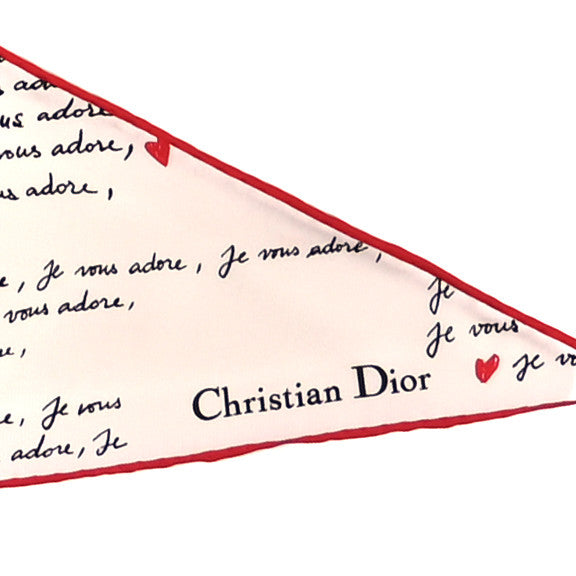 us adore,
vous adore,
us adore,
e, Je vous adore, Je vous adore,
Je
vous adore,
Je vous
e,
Je
Christian Dior
e, Je vous
adore, Je